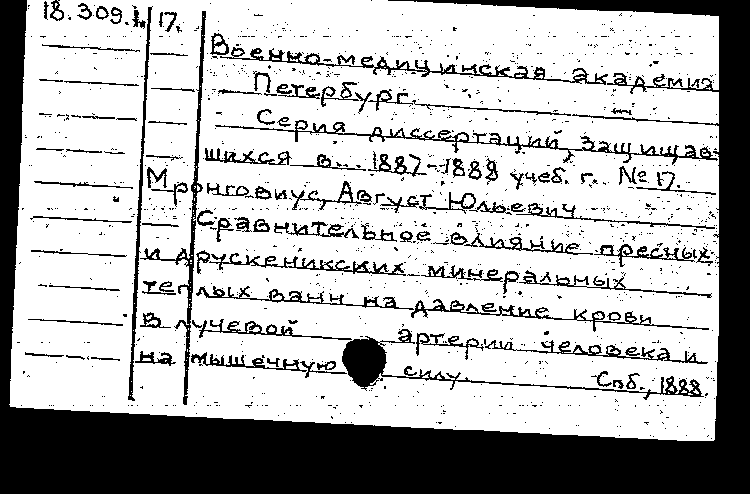 18.309.1. 17.
Военно-медицинская академия
Петербург.
Серия диссертаций, защищав-
шихся в... 1887-1888 учеб. г. № 17.
Мронговиус, Август Юльевич
Сравнительное влияние пресных
и друскеникских минеральных
теплых ванн на давление крови
в лучевой артерии человека и
на мышечную силу. Спб., 1888.